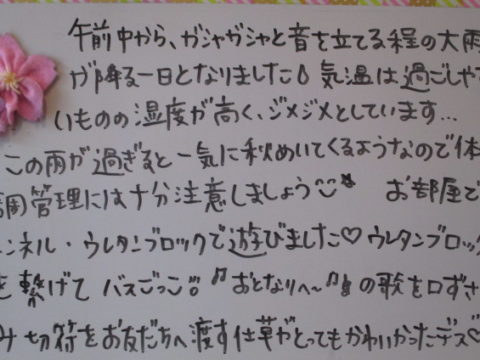 午前中から、ガシャガシャと音を立てる程の大雨
が降る一日となりました💧気温は過ごしやす
いものの湿度が高く、ジメジメとしています…
この雨が過ぎると一気に秋めいてくるようなので体
調管理には十分注意しましょう お部屋で
ンネル・ウレタンブロックで遊びました♡ウレタンブロック
を繋げてバスごっこ!!♫おとなりへ〜♫の歌を口ずさ
み切符をお友だちへ渡す仕草がとってもかわいかったデス♡